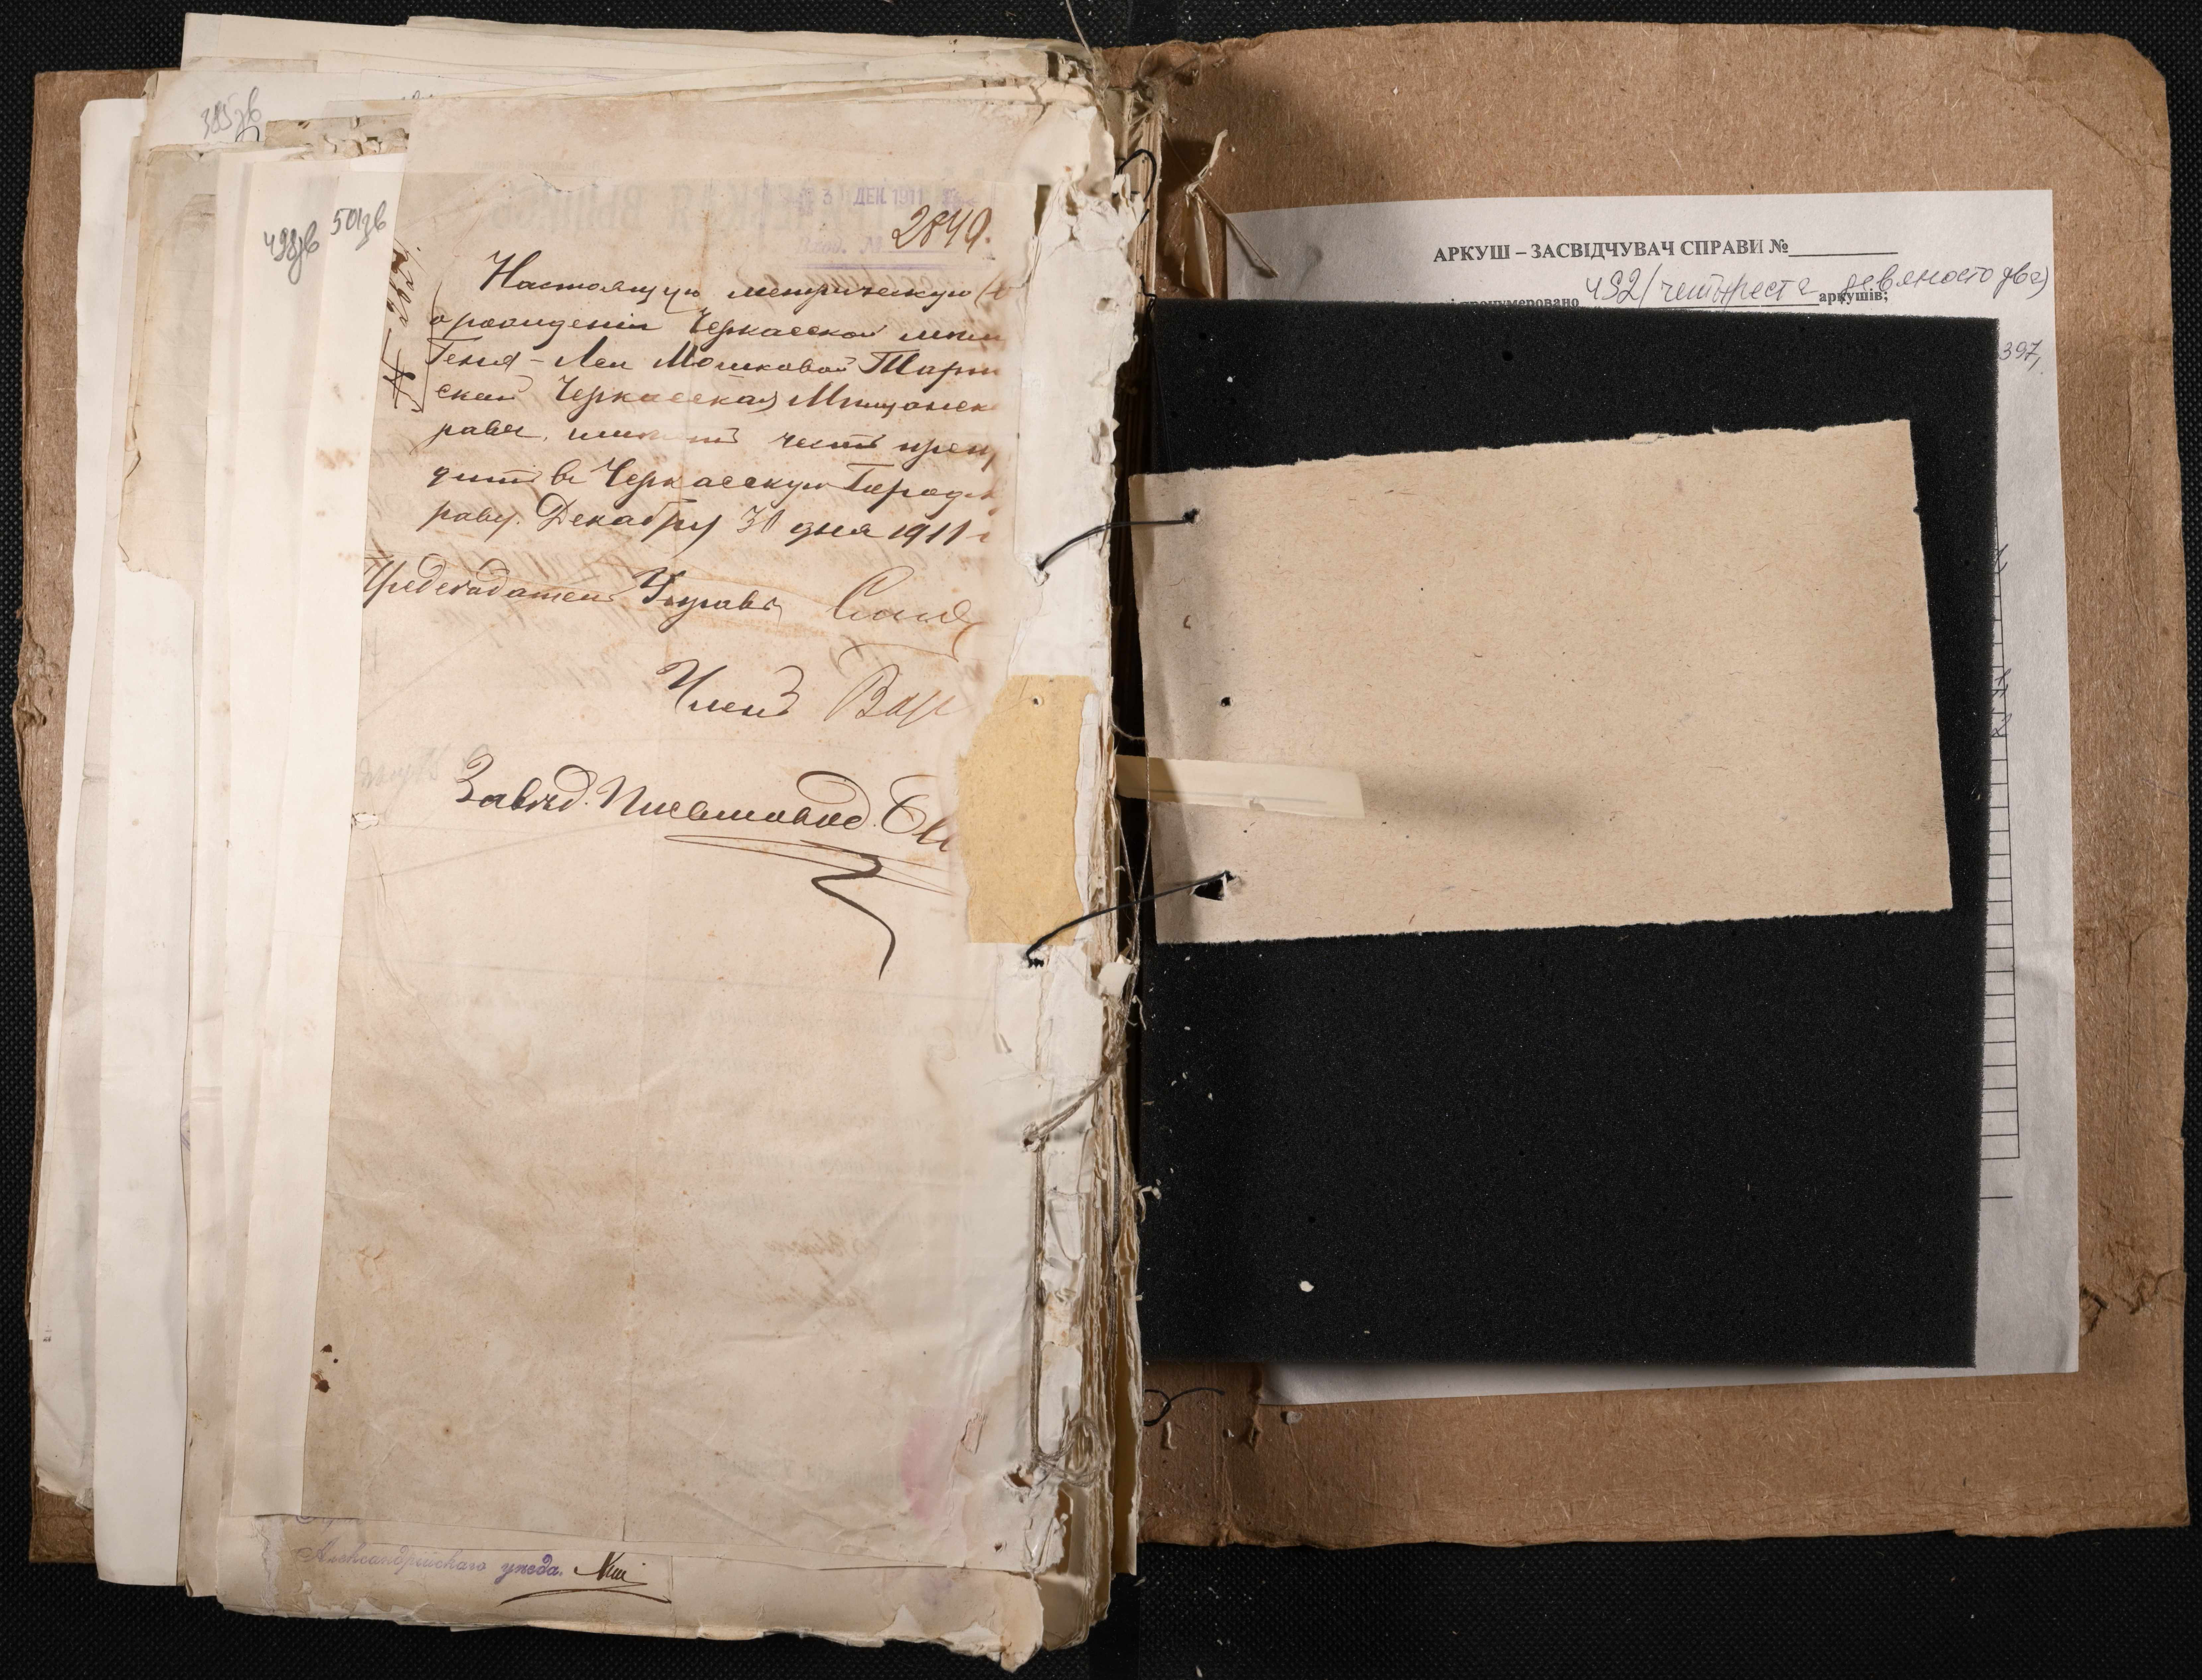 385зв
498зв
501зв
3 ДЕК. 1911
Вход. № 2849.
Настоящую метрическую
о рождении Черкасской мещ
Геня-Леи Мошковой Тари
ской Черкасская Мещанск
рава, имеет честь преп
дить в Черкасскую Городск
раву. Декабря 31 дня 1911 г
Председатель Управы
Членъ
Завѣд. Письмовод.
Александрійскаго уѣзда.
АРКУШ – ЗАСВІДЧУВАЧ СПРАВИ №
пронумеровано 492 (чотириста девяносто два) аркушів;
397,